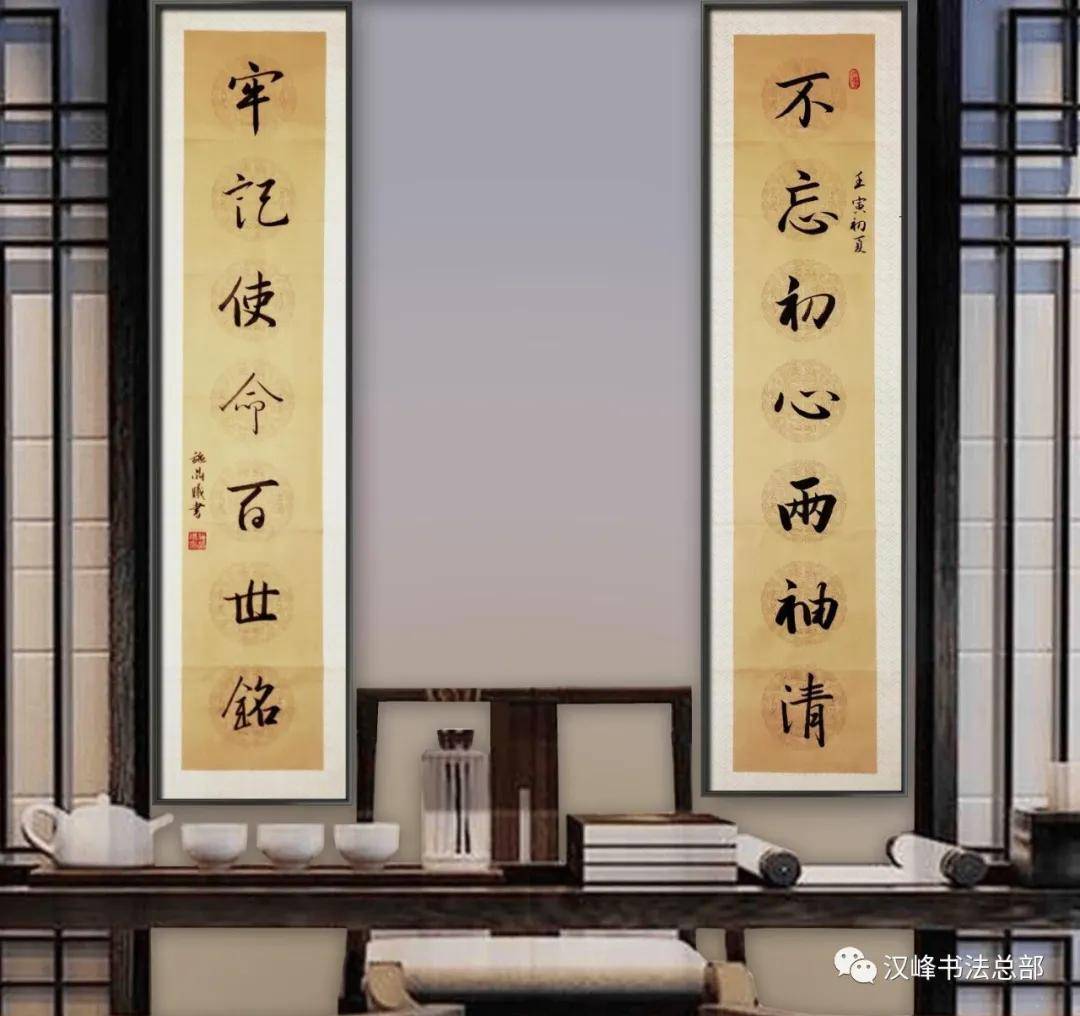 不忘初心两袖清
壬寅初夏
牢記使命百世銘
書
汉峰书法总部